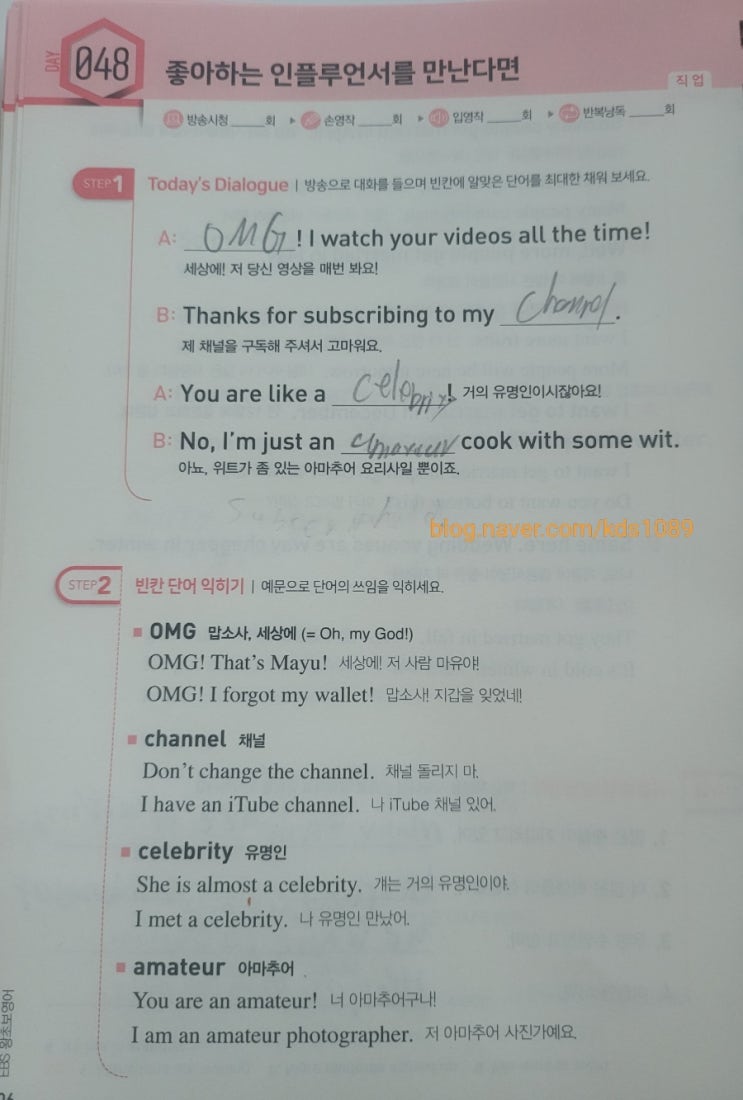 DAY 048 좋아하는 인플루언서를 만난다면
직업
방송시청 ____회 ▶ 손영작 ____회 ▶ 입영작 ____회 ▶ 반복낭독 ____회
STEP 1 Today's Dialogue | 방송으로 대화를 들으며 빈칸에 알맞은 단어를 최대한 채워 보세요.
A: OMG! I watch your videos all the time!
세상에! 저 당신 영상을 매번 봐요!
B: Thanks for subscribing to my channel.
제 채널을 구독해 주셔서 고마워요.
A: You are like a celebrity! 거의 유명인이시잖아요!
B: No, I'm just an amateur cook with some wit.
아뇨, 위트가 좀 있는 아마추어 요리사일 뿐이죠.
blog.naver.com/kds1089
STEP 2 빈칸 단어 익히기 | 예문으로 단어의 쓰임을 익히세요.
■ OMG 맙소사, 세상에 (= Oh, my God!)
OMG! That's Mayu! 세상에! 저 사람 마유야!
OMG! I forgot my wallet! 맙소사! 지갑을 잊었네!
■ channel 채널
Don't change the channel. 채널 돌리지 마.
I have an iTube channel. 나 iTube 채널 있어.
■ celebrity 유명인
She is almost a celebrity. 걔는 거의 유명인이야.
I met a celebrity. 나 유명인 만났어.
■ amateur 아마추어
You are an amateur! 너 아마추어구나!
I am an amateur photographer. 저 아마추어 사진가예요.
EBS 왕초보영어